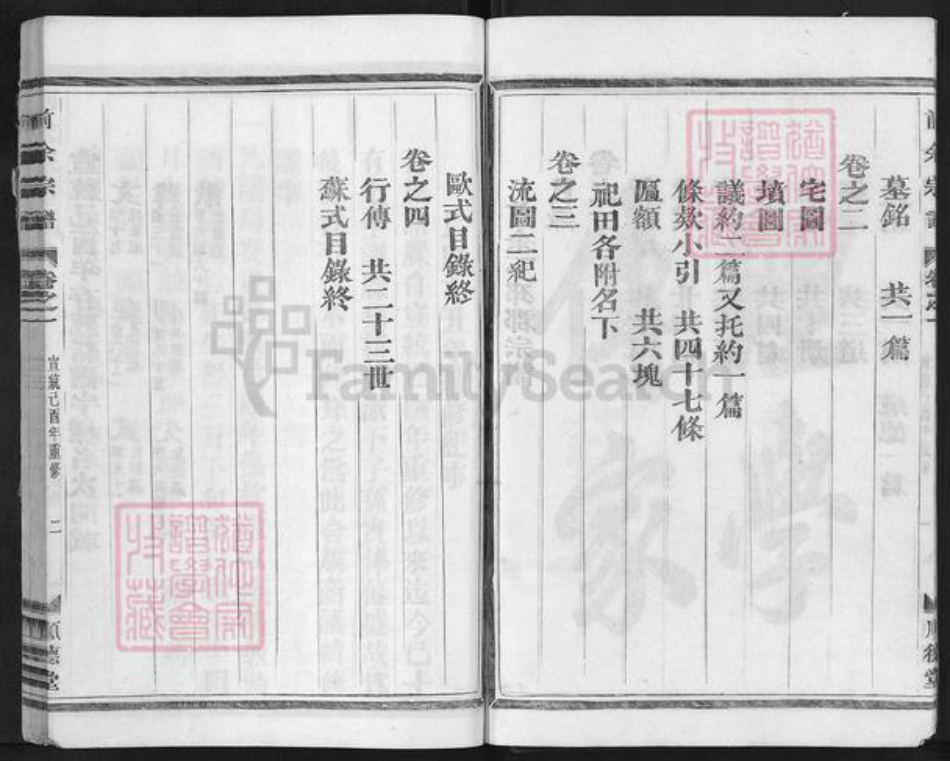 墓銘 共一篇
卷之二
宅圖
墳圖
議約一篇又托約一篇
條欵小引 共四十七條
匾額 共六塊
祀田各附名下
卷之三
流圖一紀
歐式目錄終
卷之四
行傳 共二十三世
蘇式目錄終
前余宗譜 卷之一 宣統己酉年重修 二 順德堂
FamilySearch